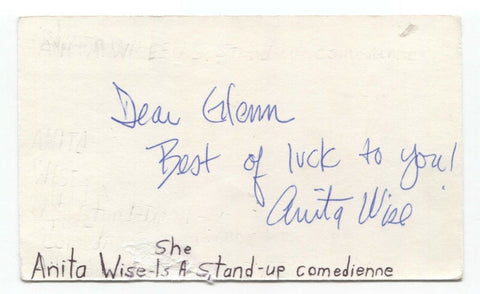 Dear Glenn
Best of luck to you!
Anita Wise
She
Anita Wise-Is A Stand-up comedienne